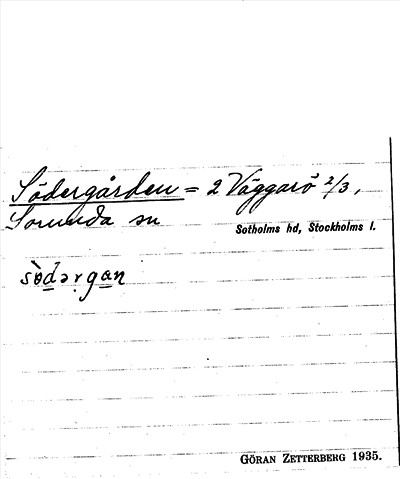 Södergården = 2 Väggarö 2/3,
Sorunda sn
Sotholms hd, Stockholms l.
sòdərgan
GÖRAN ZETTERBERG 1935.